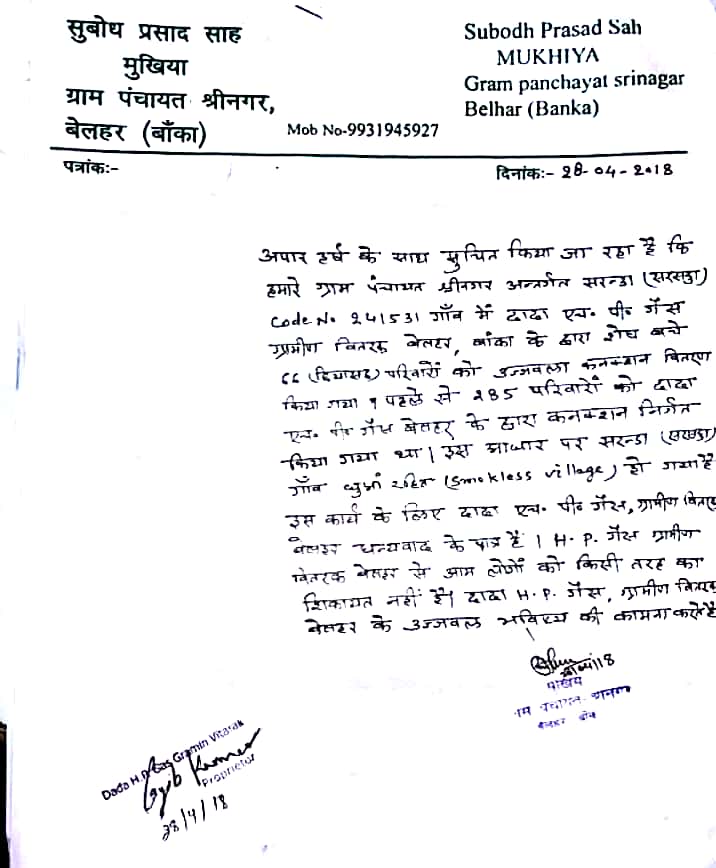 सुबोध प्रसाद साह
मुखिया
ग्राम पंचायत श्रीनगर,
बेलहर (बाँका)
Subodh Prasad Sah
MUKHIYA
Gram panchayat srinagar
Belhar (Banka)
Mob No-9931945927
पत्रांकः-
दिनांकः- 28-04-2018
अपार हर्ष के साथ सुचित किया जा रहा है कि
हमारे ग्राम पंचायत श्रीनगर अन्तर्गत सरन्डा (सरसन्डा)
Code No 241531 गाँव में दादा एच० पी० गैस
ग्रामीण वितरक बेलहर, बांका के द्वारा शेष बचे
66 (छियासठ) परिवारों को उज्जवला कनक्शन वितरण
किया गया १ पहले से 285 परिवारों को दादा
एच० पी० गैस बेलहर के द्वारा कनक्शन निर्गत
किया गया था। इस आधार पर सरन्डा (सरसन्डा)
गाँव धुआँ रहित (Smokless village) हो गया है
इस कार्य के लिए दादा एच० पी० गैस, ग्रामीण वितरक
बेलहर धन्यवाद के पात्र हैं। H.P. गैस ग्रामीण
वितरक बेलहर से आम लोगों को किसी तरह का
शिकायत नहीं है। दादा H.P. गैस, ग्रामीण वितरक
बेलहर के उज्जवल भविष्य की कामना करते है
28/04/18
Dada H.P. Gas Gramin Vitarak
Kumar
Proprietor
28/4/18